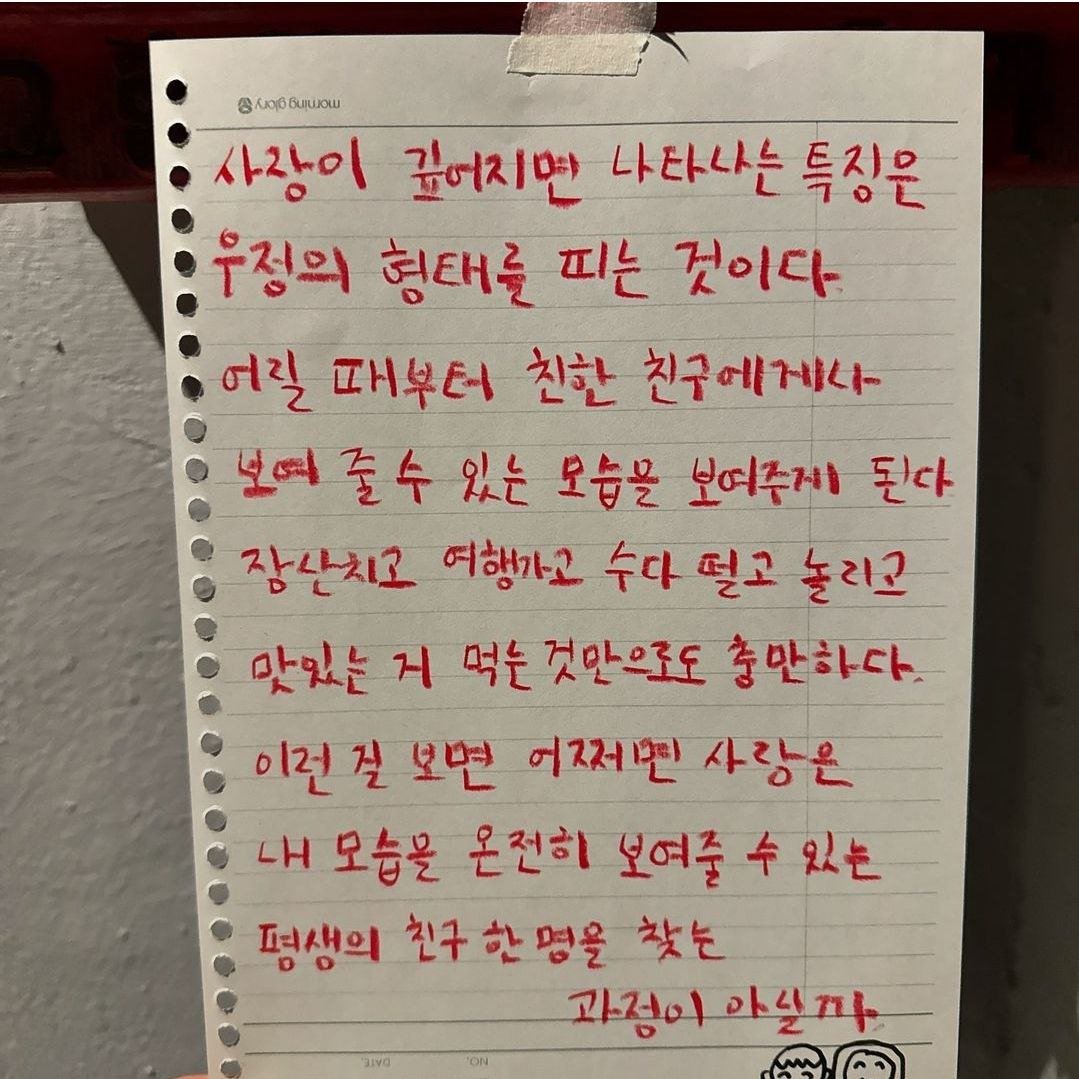 morning glory
사랑이 깊어지면 나타나는 특징은
우정의 형태를 띠는 것이다.
어릴 때부터 친한 친구에게나
보여 줄 수 있는 모습을 보여주게 된다
장난치고 여행가고 수다 떨고 놀리고
맛있는 거 먹는 것만으로도 충만하다.
이런 걸 보면 어쩌면 사랑은
내 모습을 온전히 보여줄 수 있는
평생의 친구 한 명을 찾는
과정이 아닐까.
DATE. NO.